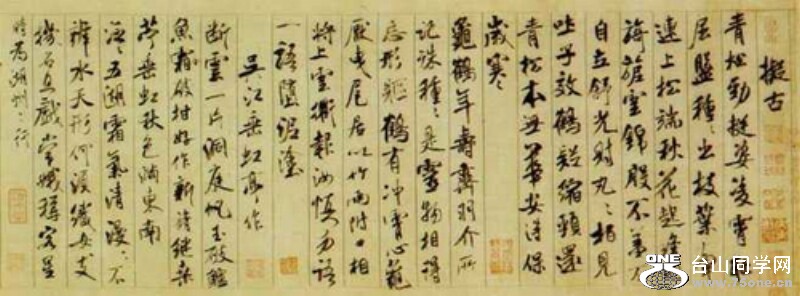 擬古
青松勁挺姿凌霄恥
屈盤種々出枝葉牽
連上松端秋花起絳煙
旖旎雲錦殷不羞不
自立舒光射丸々柏見
吐子效鶴疑縮頸還
青松本無華安得保
歲寒
龜鶴年壽齊羽介所
託殊種々是靈物相得
忘形軀鶴有沖霄心龜
厭曳尾居以竹兩附口相
將上雲衢報汝慎勿語
一語墮泥塗
吳江垂虹亭作
斷雲一片洞庭帆玉破鱸
魚霜破柑好作新詩繼桑
苧垂虹秋色滿東南
泛々五湖霜氣清漫々不
辨水天形何須織女支
機石且戲常娥稱客星
時為湖州之行
ONE
75
台山同学网
www.75one.cn